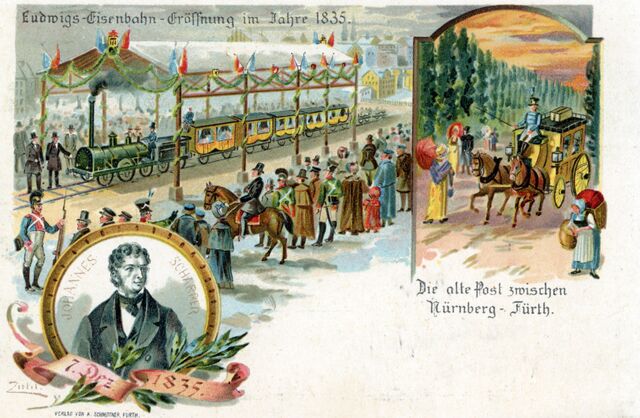 Ludwigs-Eisenbahn-Eröffnung im Jahre 1835.
Die alte Post zwischen
Nürnberg - Fürth.
JOHANNES SCHARRER
7. Dez. 1835.
VERLAG VON A. SCHROTTNER, FÜRTH.